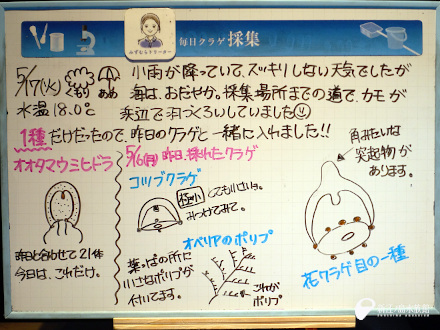 毎日クラゲ採集
5/17(火)
あめ
水温18.0℃
小雨が降っていて、スッキリしない天気でしたが
海は、おだやか。採集場所までの道で、カモが
浜辺で羽づくろいしていました
1種だけだったので、昨日のクラゲと一緒に入れました!!
オオタマウミヒドラ
昨日と合わせて21体
今日は、これだけ。
5/16(月)昨日、採れたクラゲ
コツブクラゲ
極小
とても小さい。
みつけてみて。
オベリアのポリプ
葉っぱの所に
小さなポリプが
付いてます。
これが
ポリプ
角みたいな
突起物が
あります。
花クラゲ目の一種